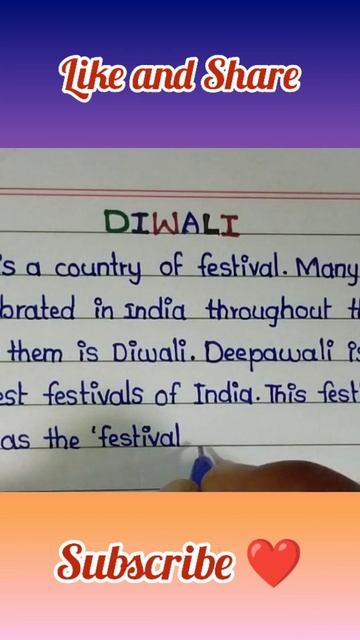 Like and Share
DIWALI
is a country of festival. Many
brated in India throughout th
them is Diwali. Deepawali is
est festivals of India. This fest
as the 'festival
Subscribe ❤️